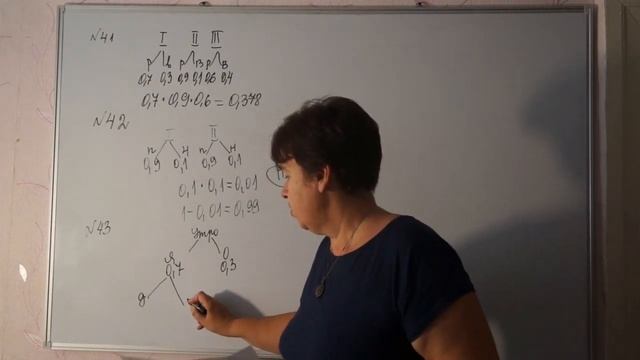 №41
I II III
р в р в р в
0,7 0,3 0,9 0,1 0,6 0,4
0,7·0,9·0,6=0,378
№42
I II
п н п н
0,9 0,1 0,9 0,1
0,1·0,1=0,01
1-0,01=0,99
№43
утро
я О
0,7 0,3
д